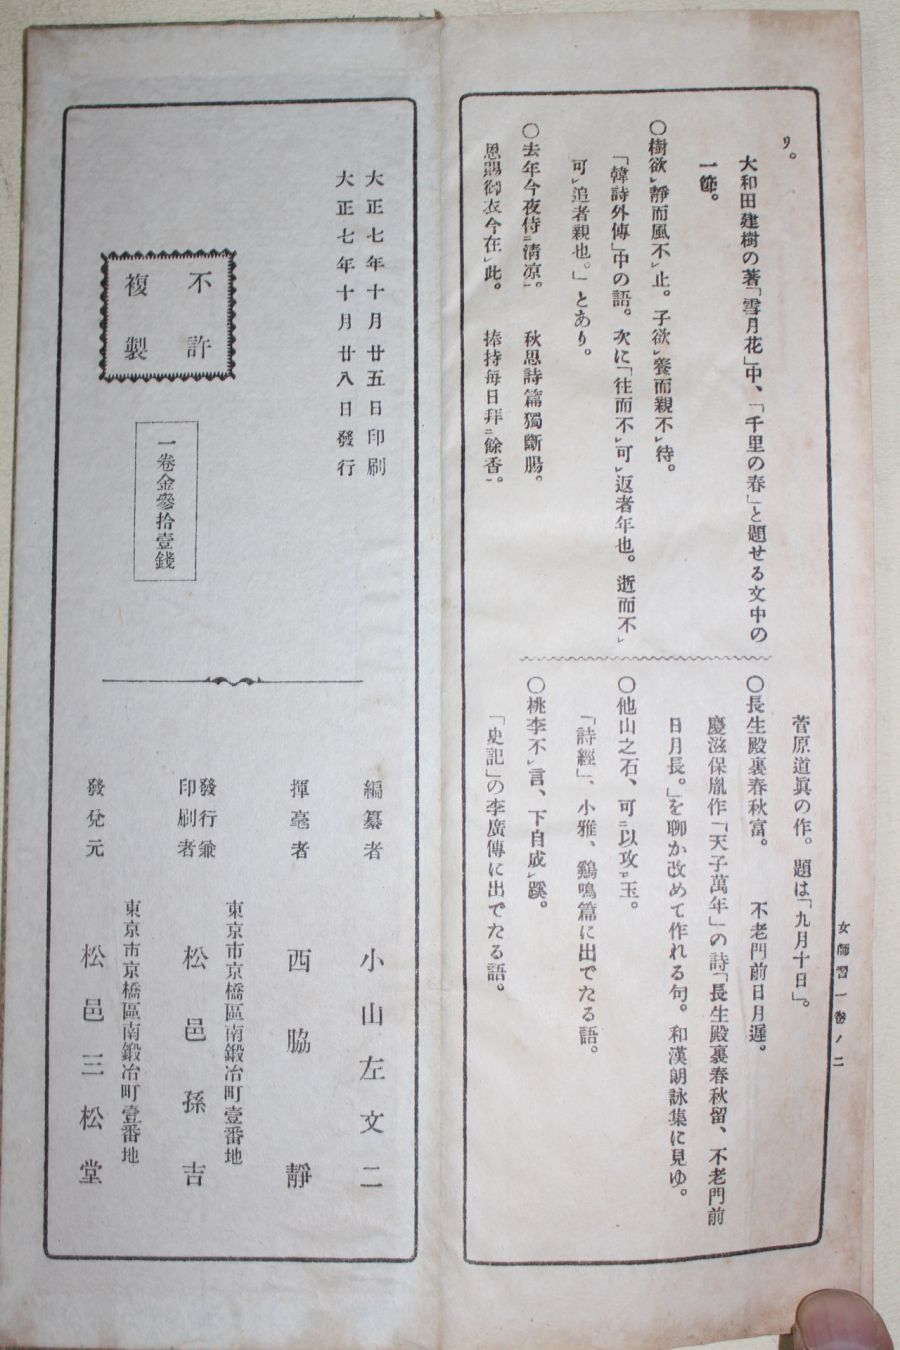 り。
大和田建樹の著「雪月花」中、「千里の春」と題せる文中の
一節。
○樹欲㆑靜而風不㆑止。子欲㆑養而親不㆑待。
「韓詩外傳」中の語。次に「往而不㆑可㆑返者年也。逝而不㆑
可㆑追者親也。」とあり。
○去年今夜侍㆓清凉㆒。 秋思詩篇獨斷腸。
恩賜御衣今在㆑此。 捧持每日拜㆓餘香㆒。
菅原道眞の作。題は「九月十日」。
○長生殿裏春秋富。 不老門前日月遲。
慶滋保胤作「天子萬年」の詩「長生殿裏春秋留、不老門前
日月長。」を聊か改めて作れる句。和漢朗詠集に見ゆ。
○他山之石、可㆓以攻㆒㆑玉。
「詩經」、小雅、鷄鳴篇に出でたる語。
○桃李不㆑言、下自成㆑蹊。
「史記」の李廣傳に出でたる語。
女師習一卷ノ二
大正七年十月廿五日印刷
大正七年十月廿八日發行
不許
複製
一卷金參拾壹錢
編纂者 小山左文二
揮毫者 西脇靜
東京市京橋區南鍛冶町壹番地
發行兼
印刷者 松邑孫吉
東京市京橋區南鍛冶町壹番地
發兌元 松邑三松堂